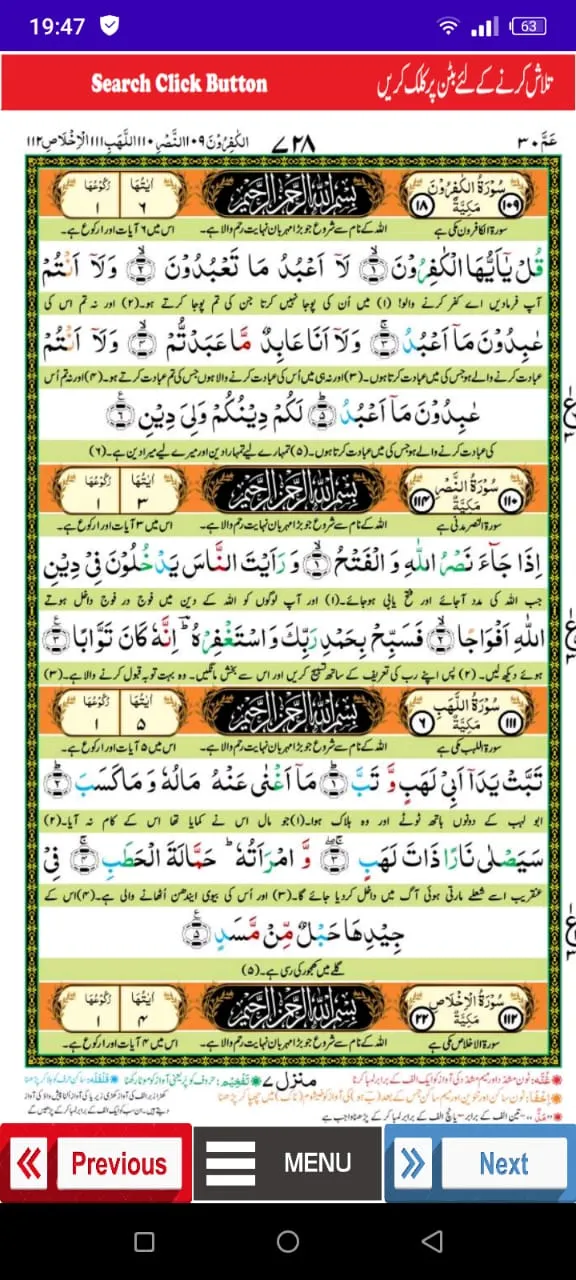 19:47
63
Search Click Button تلاش کرنے کے لئے بٹن پر کلک کریں
عَمّ ۳۰ ۷۲۸ الکٰفِرُوْن ۱۰۹ النَّصْر ۱۱۰ اللَّهَب ۱۱۱ الْاِخْلَاص ۱۱۲
۱۰۹ سُوْرَةُ الْكٰفِرُوْنَ مَكِّيَّةٌ ۱۸ بِسْمِ اللهِ الرَّحْمٰنِ الرَّحِيْمِ اٰيَاتُهَا ۶ رُكُوْعُهَا ۱
سورۃ الکافرون مکی ہے اللہ کے نام سے شروع جو بڑا مہربان نہایت رحم والا ہے۔ اس میں ۶ آیات اور ۱ رکوع ہے۔
قُلْ يٰۤاَيُّهَا الْكٰفِرُوْنَ ۙ﴿۱﴾ لَاۤ اَعْبُدُ مَا تَعْبُدُوْنَ ۙ﴿۲﴾ وَلَاۤ اَنْتُمْ
آپ فرمادیں اے کفر کرنے والو! (۱) میں اُن کی پوجا نہیں کرتا جن کی تم پوجا کرتے ہو۔ (۲) اور نہ تم اس کی
عٰبِدُوْنَ مَاۤ اَعْبُدُ ۚ﴿۳﴾ وَلَاۤ اَنَا عَابِدٌ مَّا عَبَدْتُّمْ ۙ﴿۴﴾ وَلَاۤ اَنْتُمْ
عبادت کرنے والے ہو جس کی میں عبادت کرتا ہوں۔ (۳) اور نہ ہی میں اُس کی عبادت کرنے والا ہوں جس کی تم عبادت کرتے ہو۔ (۴) اور نہ تم اُس
عٰبِدُوْنَ مَاۤ اَعْبُدُ ؕ﴿۵﴾ لَكُمْ دِيْنُكُمْ وَلِیَ دِيْنِ ﴿۶﴾
کی عبادت کرنے والے ہو جس کی میں عبادت کرتا ہوں۔ (۵) تمہارے لیے تمہارا دین اور میرے لیے میرا دین ہے۔ (۶)
۱۱۰ سُوْرَةُ النَّصْرِ مَكِّيَّةٌ ۱۱۴ بِسْمِ اللهِ الرَّحْمٰنِ الرَّحِيْمِ اٰيَاتُهَا ۳ رُكُوْعُهَا ۱
سورۃ النصر مدنی ہے اللہ کے نام سے شروع جو بڑا مہربان نہایت رحم والا ہے۔ اس میں ۳ آیات اور ۱ رکوع ہے۔
اِذَا جَآءَ نَصْرُ اللّٰهِ وَ الْفَتْحُ ۙ﴿۱﴾ وَ رَاَيْتَ النَّاسَ يَدْخُلُوْنَ فِیْ دِيْنِ
جب اللہ کی مدد آجائے اور فتح یابی ہوجائے۔ (۱) اور آپ لوگوں کو اللہ کے دین میں فوج در فوج داخل ہوتے
اللّٰهِ اَفْوَاجًا ۙ﴿۲﴾ فَسَبِّحْ بِحَمْدِ رَبِّكَ وَ اسْتَغْفِرْهُ ؕ اِنَّهٗ كَانَ تَوَّابًا ﴿۳﴾
ہوئے دیکھ لیں۔ (۲) پس اپنے رب کی تعریف کے ساتھ تسبیح کریں اور اس سے بخشش مانگیں۔ وہ بہت توبہ قبول کرنے والا ہے۔ (۳)
۱۱۱ سُوْرَةُ اللَّهَبِ مَكِّيَّةٌ ۶ بِسْمِ اللهِ الرَّحْمٰنِ الرَّحِيْمِ اٰيَاتُهَا ۵ رُكُوْعُهَا ۱
سورۃ اللہب مکی ہے اللہ کے نام سے شروع جو بڑا مہربان نہایت رحم والا ہے۔ اس میں ۵ آیات اور ۱ رکوع ہے۔
تَبَّتْ يَدَاۤ اَبِیْ لَهَبٍ وَّ تَبَّ ؕ﴿۱﴾ مَاۤ اَغْنٰی عَنْهُ مَالُهٗ وَ مَا كَسَبَ ؕ﴿۲﴾
ابو لہب کے دونوں ہاتھ ٹوٹے اور وہ ہلاک ہوا۔ (۱) جو مال اس نے کمایا تھا اس کے کام نہ آیا۔ (۲)
سَيَصْلٰی نَارًا ذَاتَ لَهَبٍ ۚۖ﴿۳﴾ وَّ امْرَاَتُهٗ ؕ حَمَّالَةَ الْحَطَبِ ۚ﴿۴﴾ فِیْ
عنقریب اسے شعلے مارتی ہوئی آگ میں داخل کردیا جائے گا۔ (۳) اور اُس کی بیوی ایندھن اُٹھانے والی ہے۔ (۴) اس کے
جِيْدِهَا حَبْلٌ مِّنْ مَّسَدٍ ﴿۵﴾
گلے میں کھجور کی رسی ہے۔ (۵)
۱۱۲ سُوْرَةُ الْاِخْلَاصِ مَكِّيَّةٌ ۲۲ بِسْمِ اللهِ الرَّحْمٰنِ الرَّحِيْمِ اٰيَاتُهَا ۴ رُكُوْعُهَا ۱
سورۃ الاخلاص مکی ہے اللہ کے نام سے شروع جو بڑا مہربان نہایت رحم والا ہے۔ اس میں ۴ آیات اور ۱ رکوع ہے۔
غُنّه: نون مشدّد اور میم مشدّد کی آواز کو ایک الف کے برابر لمبا کرنا منزل ۷ تَفْخِيْم: حروف کو پُر یعنی آواز کو موٹا رکھنا قَلْقَلَه:
اِخْفَا: نون ساکن اور تنوین اور میم ساکن جس کے بعد
مَدّ: تین الف کے برابر
Previous MENU Next